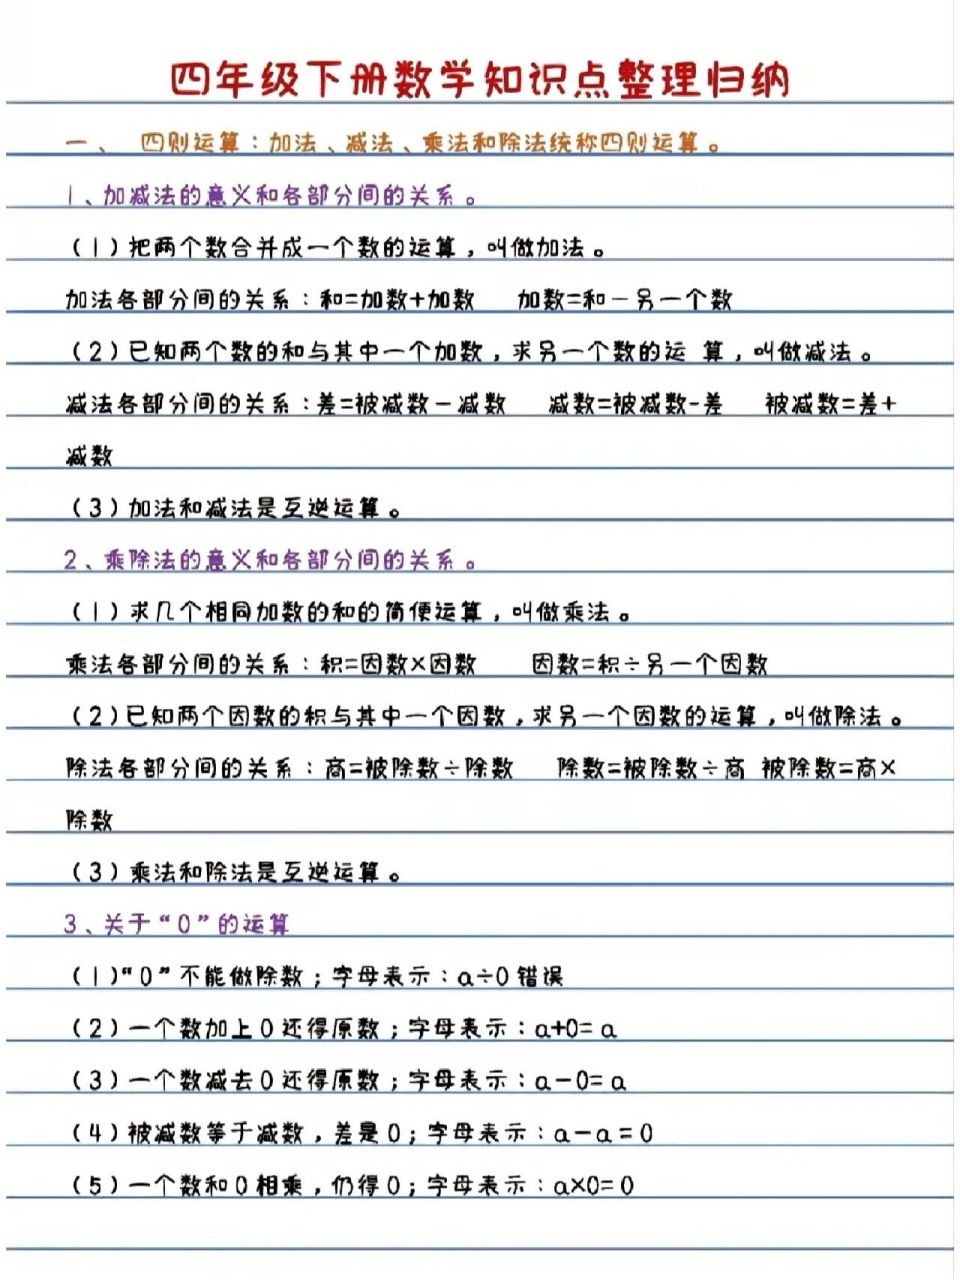 四年级下册数学知识点整理归纳
一、 四则运算：加法、减法、乘法和除法统称四则运算。
1、加减法的意义和各部分间的关系。
（1）把两个数合并成一个数的运算，叫做加法。
加法各部分间的关系：和=加数+加数 加数=和－另一个数
（2）已知两个数的和与其中一个加数，求另一个数的运 算，叫做减法。
减法各部分间的关系：差=被减数－减数 减数=被减数-差 被减数=差+
减数
（3）加法和减法是互逆运算。
2、乘除法的意义和各部分间的关系。
（1）求几个相同加数的和的简便运算，叫做乘法。
乘法各部分间的关系：积=因数×因数 因数=积÷另一个因数
（2）已知两个因数的积与其中一个因数，求另一个因数的运算，叫做除法。
除法各部分间的关系：商=被除数÷除数 除数=被除数÷商 被除数=商×
除数
（3）乘法和除法是互逆运算。
3、关于“0”的运算
（1）“0”不能做除数；字母表示：a÷0 错误
（2）一个数加上 0 还得原数；字母表示：a+0= a
（3）一个数减去 0 还得原数；字母表示：a－0= a
（4）被减数等于减数，差是 0；字母表示：a－a = 0
（5）一个数和 0 相乘，仍得 0；字母表示：a×0= 0